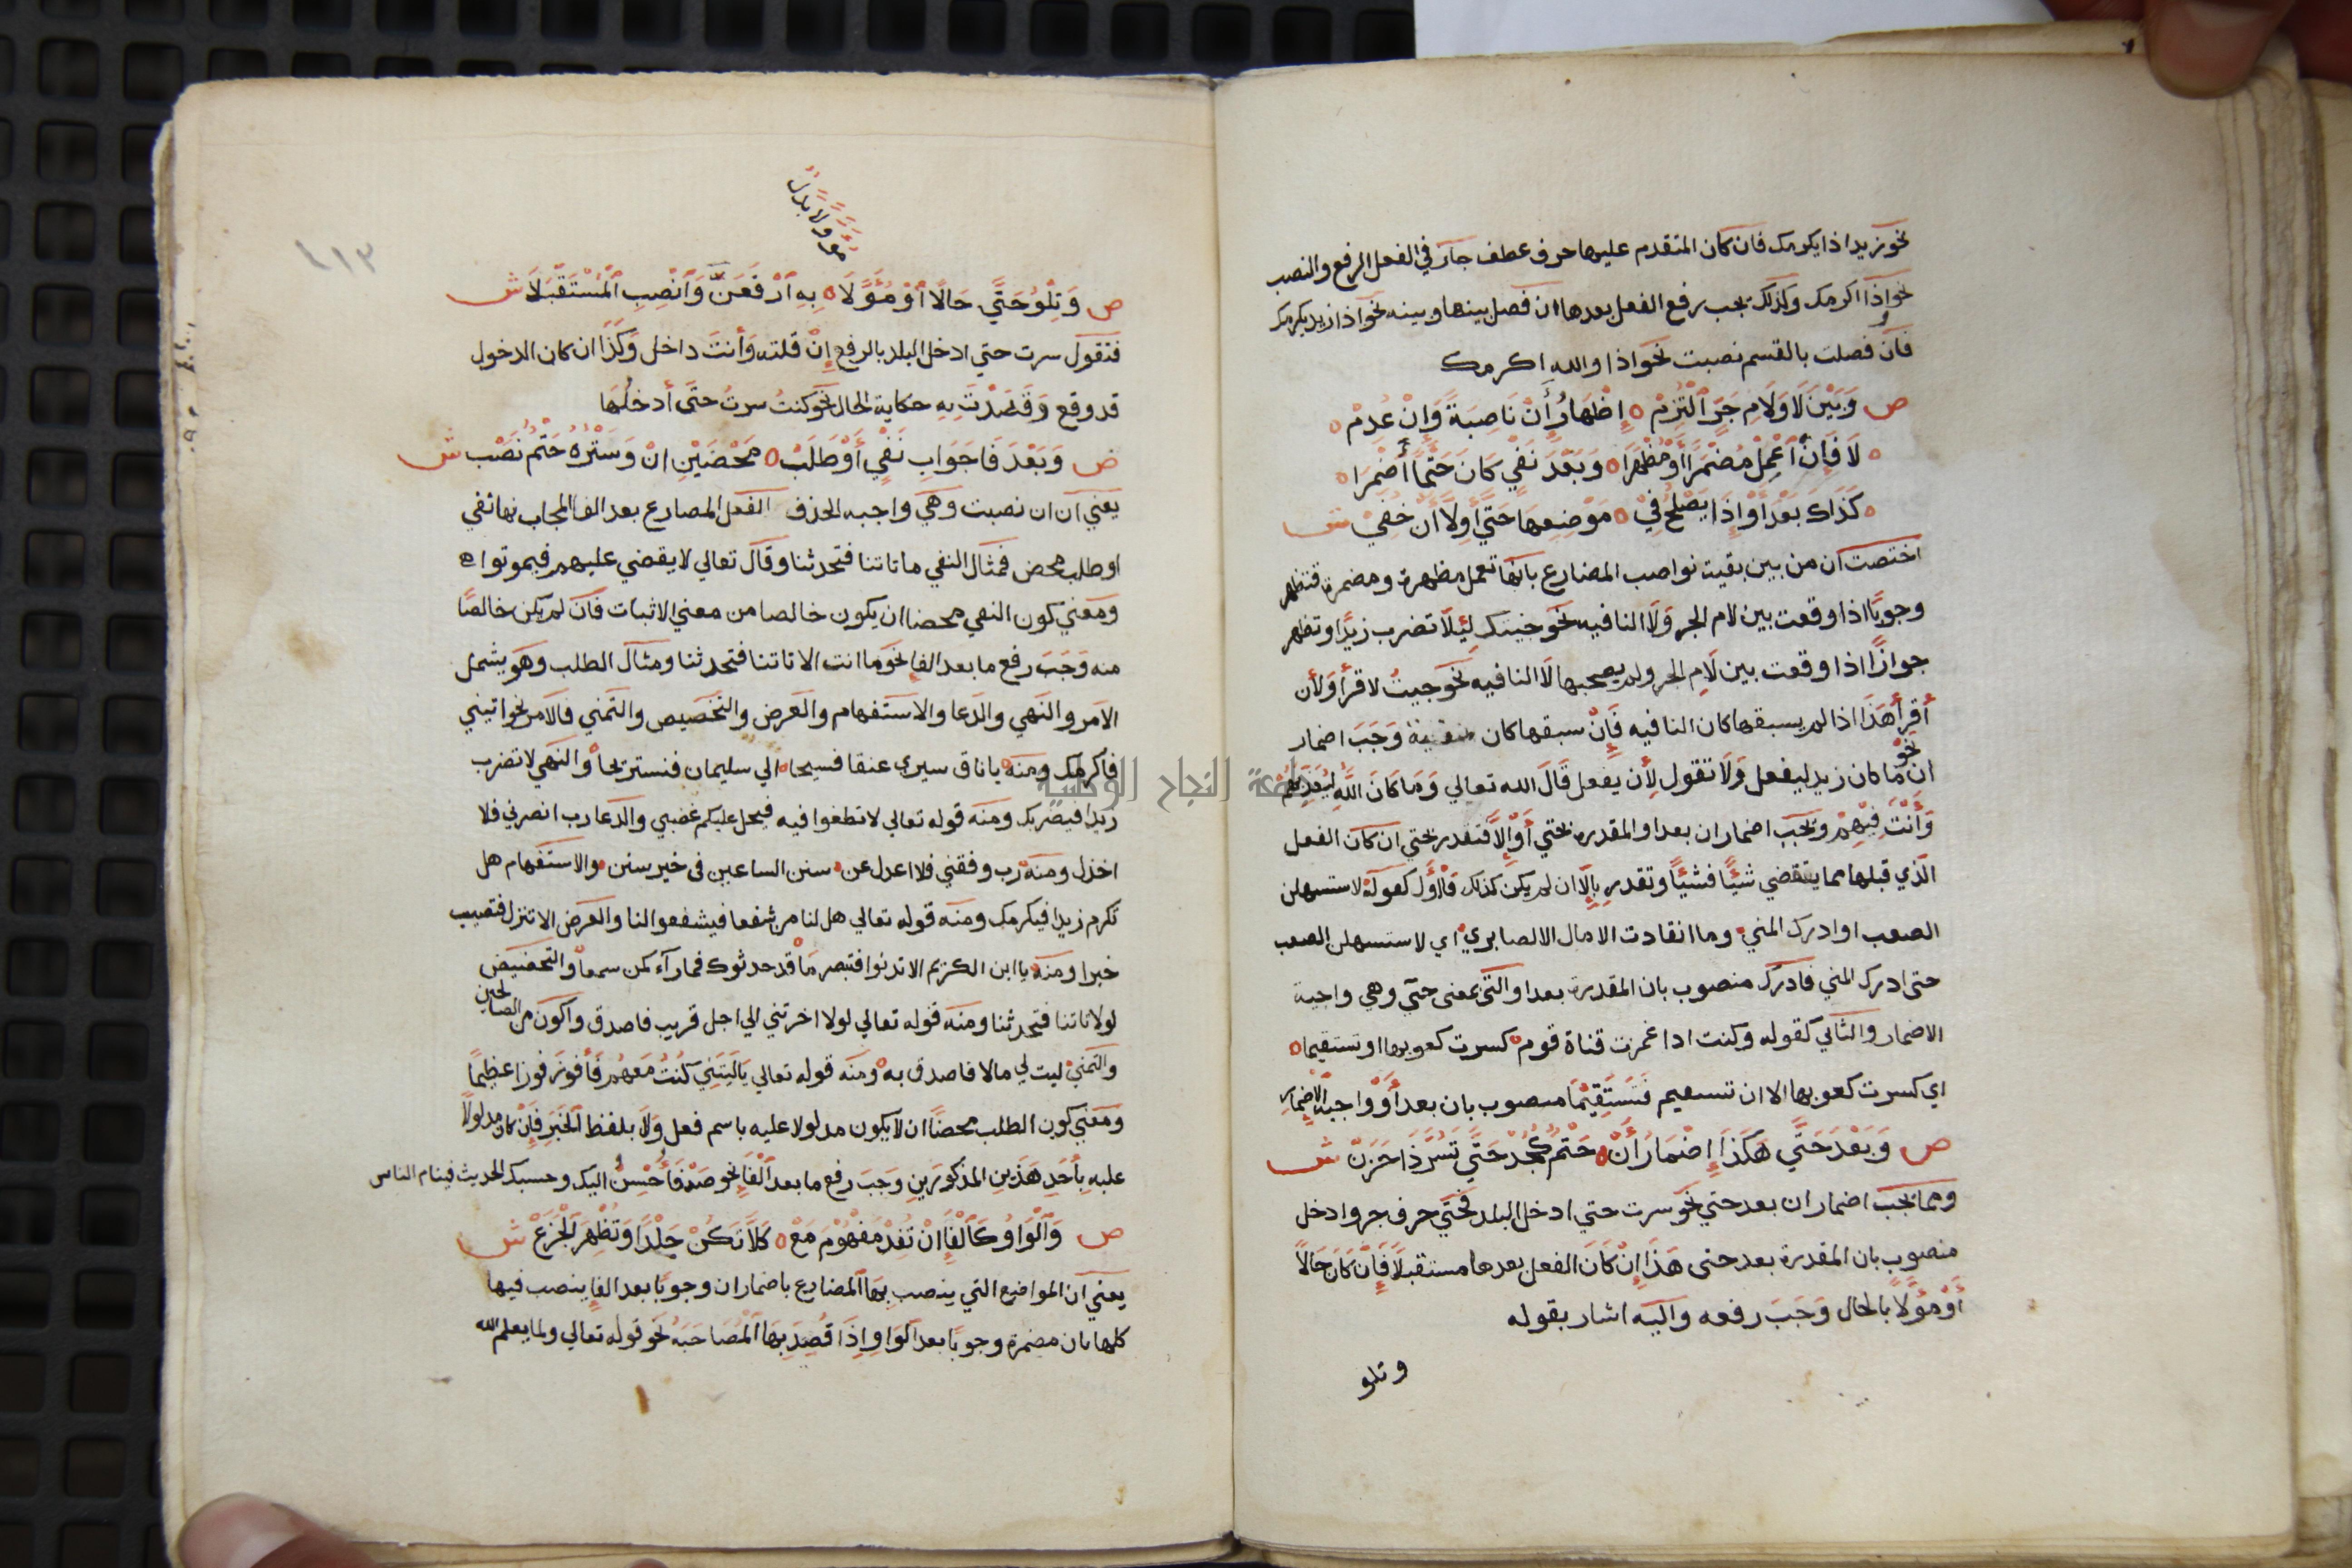 نحو زيد اذا يكرمك فان كان المتقدم عليها حرف عطف جاز في الفعل الرفع والنصب
نحو اذا اكرمك وكذلك يجب رفع الفعل بعدها ان فصل بينها وبينه نحو اذا زيد يكرمك
فان فصلت بالقسم نصبت نحو اذا والله اكرمك
ص وَبَيْنَ لَا وَلَامِ جَرٍّ اُلْتُزِمْ ه إِظْهَارُ أَنْ نَاصِبَةً وَإِنْ عُدِمْ ه
ه لَا فَأَنْ اَعْمِلْ مُضْمَرًا أَوْ مُظْهَرَا ه وَبَعْدَ نَفْيِ كَانَ حَتْمًا أُضْمِرَا ه
ه كَذَاكَ بَعْدَ أَوْ إِذَا يَصْلُحُ فِيْ ه مَوْضِعِهَا حَتَّى أَوِ اِلَّا أَنْ خَفِيْ ش
اختصت ان من بين بقيت نواصب المضارع بانها تعمل مظهرة ومضمرة فتظهر
وجوبًا اذا وقعت بين لام الجر وَلَا النافيه نحو جيتك لِئَلَّا تضرب زيدًا وتظهر
جوازًا اذا وقعت بين لَامِ الجر ولم يصحبها لَا النافيه نحو جيتُ لاقرأ وَلأن
أقرأ هَذا اذا لم يسبقها كان النافيه فَإِنْ سبقها كان منفية وَجَبَ اضمار
ان نحو ما كان زيد ليفعل وَلَا تقول لِأن يفعل قَالَ الله تعالي وَمَا كَانَ اللَّهُ لِيُعَذِّبَهُمْ
وَأَنْتَ فِيْهِمْ وَيجَب اضمار ان بعد او المقدرة بحتي أَوْ اِلَّا فتقدر بحتي ان كان الفعل
الَّذي قبلها مما ينقضي شئًا فشئًا وتقدر بِاِلَّا ان لم يكن كذلك فالأول كقوله لاستسهلن
الصعب او ادرك المني ه وما انقادت الامال الا لصابري ه اي لاستسهلن الصعب
حتى ادرك المني فادرك منصوب بان المقدرة بعد او التي بمعنى حتي وهي واجبة
الاضمار والثاني كقوله وكنت اذا غمزت قناة قوم ه كسرت كعوبها او تستقيما ه
اي كسرت كعوبها الا ان تستقيم فَتَسْتَقِيْمَا منصوب بان بعد أَوْ واجبة الاضمار
ص وَبَعْدَ حَتَّى هَكَذَا إِضْمَارُ أَنْ ه حَتْمٌ كَجُدْ حَتَّى تَسُرَّ ذَا حَزَنْ ش
ومما يجب اضمار ان بعد حتي نحو سرت حتي ادخل البلد فحتَّي حرف جر وادخل
منصوب بان المقدرة بعد حتى هَذَا إِنْ كَانَ الفعل بعدها مستقبلًا فَإِنْ كَانَ حَالًا
أَوْ مُؤَوَّلًا بالحال وَجَبَ رفعه واليه اشار بقوله
وتلو
٤١٣
ص وَتِلْوُ حَتَّي حَالًا اَوْ مُؤَوَّلَا ه بِهِ اَرْفَعَنَّ وَاَنْصِبِ اَلْمُسْتَقْبَلَا ش
فتقول سرت حتي ادخل البلد بالرفع إِنْ قلته وَأَنتَ داخل وَكَذَا ان كان الدخول
قد وقع وَقَصَدْتَ بِهِ حكاية الحال نحو كنتُ سرتُ حتَّى أدخلُهَا
ص وَبَعْدَ فَا جَوَابِ نَفْيٍ أَوْ طَلَبْ ه مَحْضَيْنِ انْ وَسَتْرُهُ حَتْمٌ نَصَبْ ش
يعَني ان ان نصبت وهي واجبه الحذف الفعل المضارع بعد الفا المجاب بها نفي
او طلب محض فمثال النفي ما تاتنا فتحدثنا وقال تعالي لا يقضي عليهم فيموتوا ه
ومَعني كون النفي محضا ان يكون خالصا من معني الاثبات فَانَ لم يكن خالصًا
منه وَجَبَ رفع ما بعد الفا نحو ما انت الا تاتنا فتحدثنا ومثال الطلب وهَو يشمل
الامر والنهي والدعا والاستفهام والعرض والتخصيص والتمني فالامر نحو اتيني
فاكرمك ومنه يا ناق سيري عنقا فسيحا ه الي سليمان فنستريحا ه والنهي لا تضرب
زيدا فيضربك ومنه قوله تعالي لا تطغوا فيه فيحل عليكم غضبي والدعا رب انصرني فلا
اخذل ومنه رب وفقني فلا اعدل عن ه سنن الساعين في خير سنن ه والاستفهام هل
تكرم زيدا فيكرمك ومنه قوله تعالي هل لنا من شفعا فيشفعوا لنا والعرض الا تنزل فتصيب
خيرا ومنه يا ابن الكريم الا تدنوا فتبصر ما قد حدثوك فما رآء كمن سمعا ه والتحضيض
لولا تاتنا فتحدثنا ومنه قوله تعالي لولا اخرتني الي اجل قريب فاصدق واكون من الصالحين
والتمني ليت لي مالا فاصدق به ه ومنه قوله تعالي يَالَيتَنِي كُنتُ مَعهُم فَأَفوزَ فوزا عظيمًا
وَمَعني كون الطلب محضًا ان لا يكون مدلولا عليه باسم فعل ولَا بلفظ الخَبَرِ فَإِنْ كان مدلولًا
عليهِ بِأَحَدِ هَذَينِ المذكورَينِ وَجَبَ رفع ما بعد الفَا نحو صَهْ فَأُحْسِنُ اليك وحسبك الحديث فينام الناس
ص وَالْوَاوُ كَالْفَا اِنْ تُفِدْ مَفْهُوْمَ مَعْ ه كَلَا تَكُنْ جَلْدًا وَتُظْهِرَ الْجَزَعْ ش
يعني ان المواضع التي ينصب بِهَا المضارع باضمار ان وجوبًا بعد الفا ينصب فيها
كلها بان مضمرة وجوبًا بعد الوَاوِ إِذَا قُصِدَ بِهَا المُصَاحَبَةُ نحو قوله تعالي ولما يعلم الله